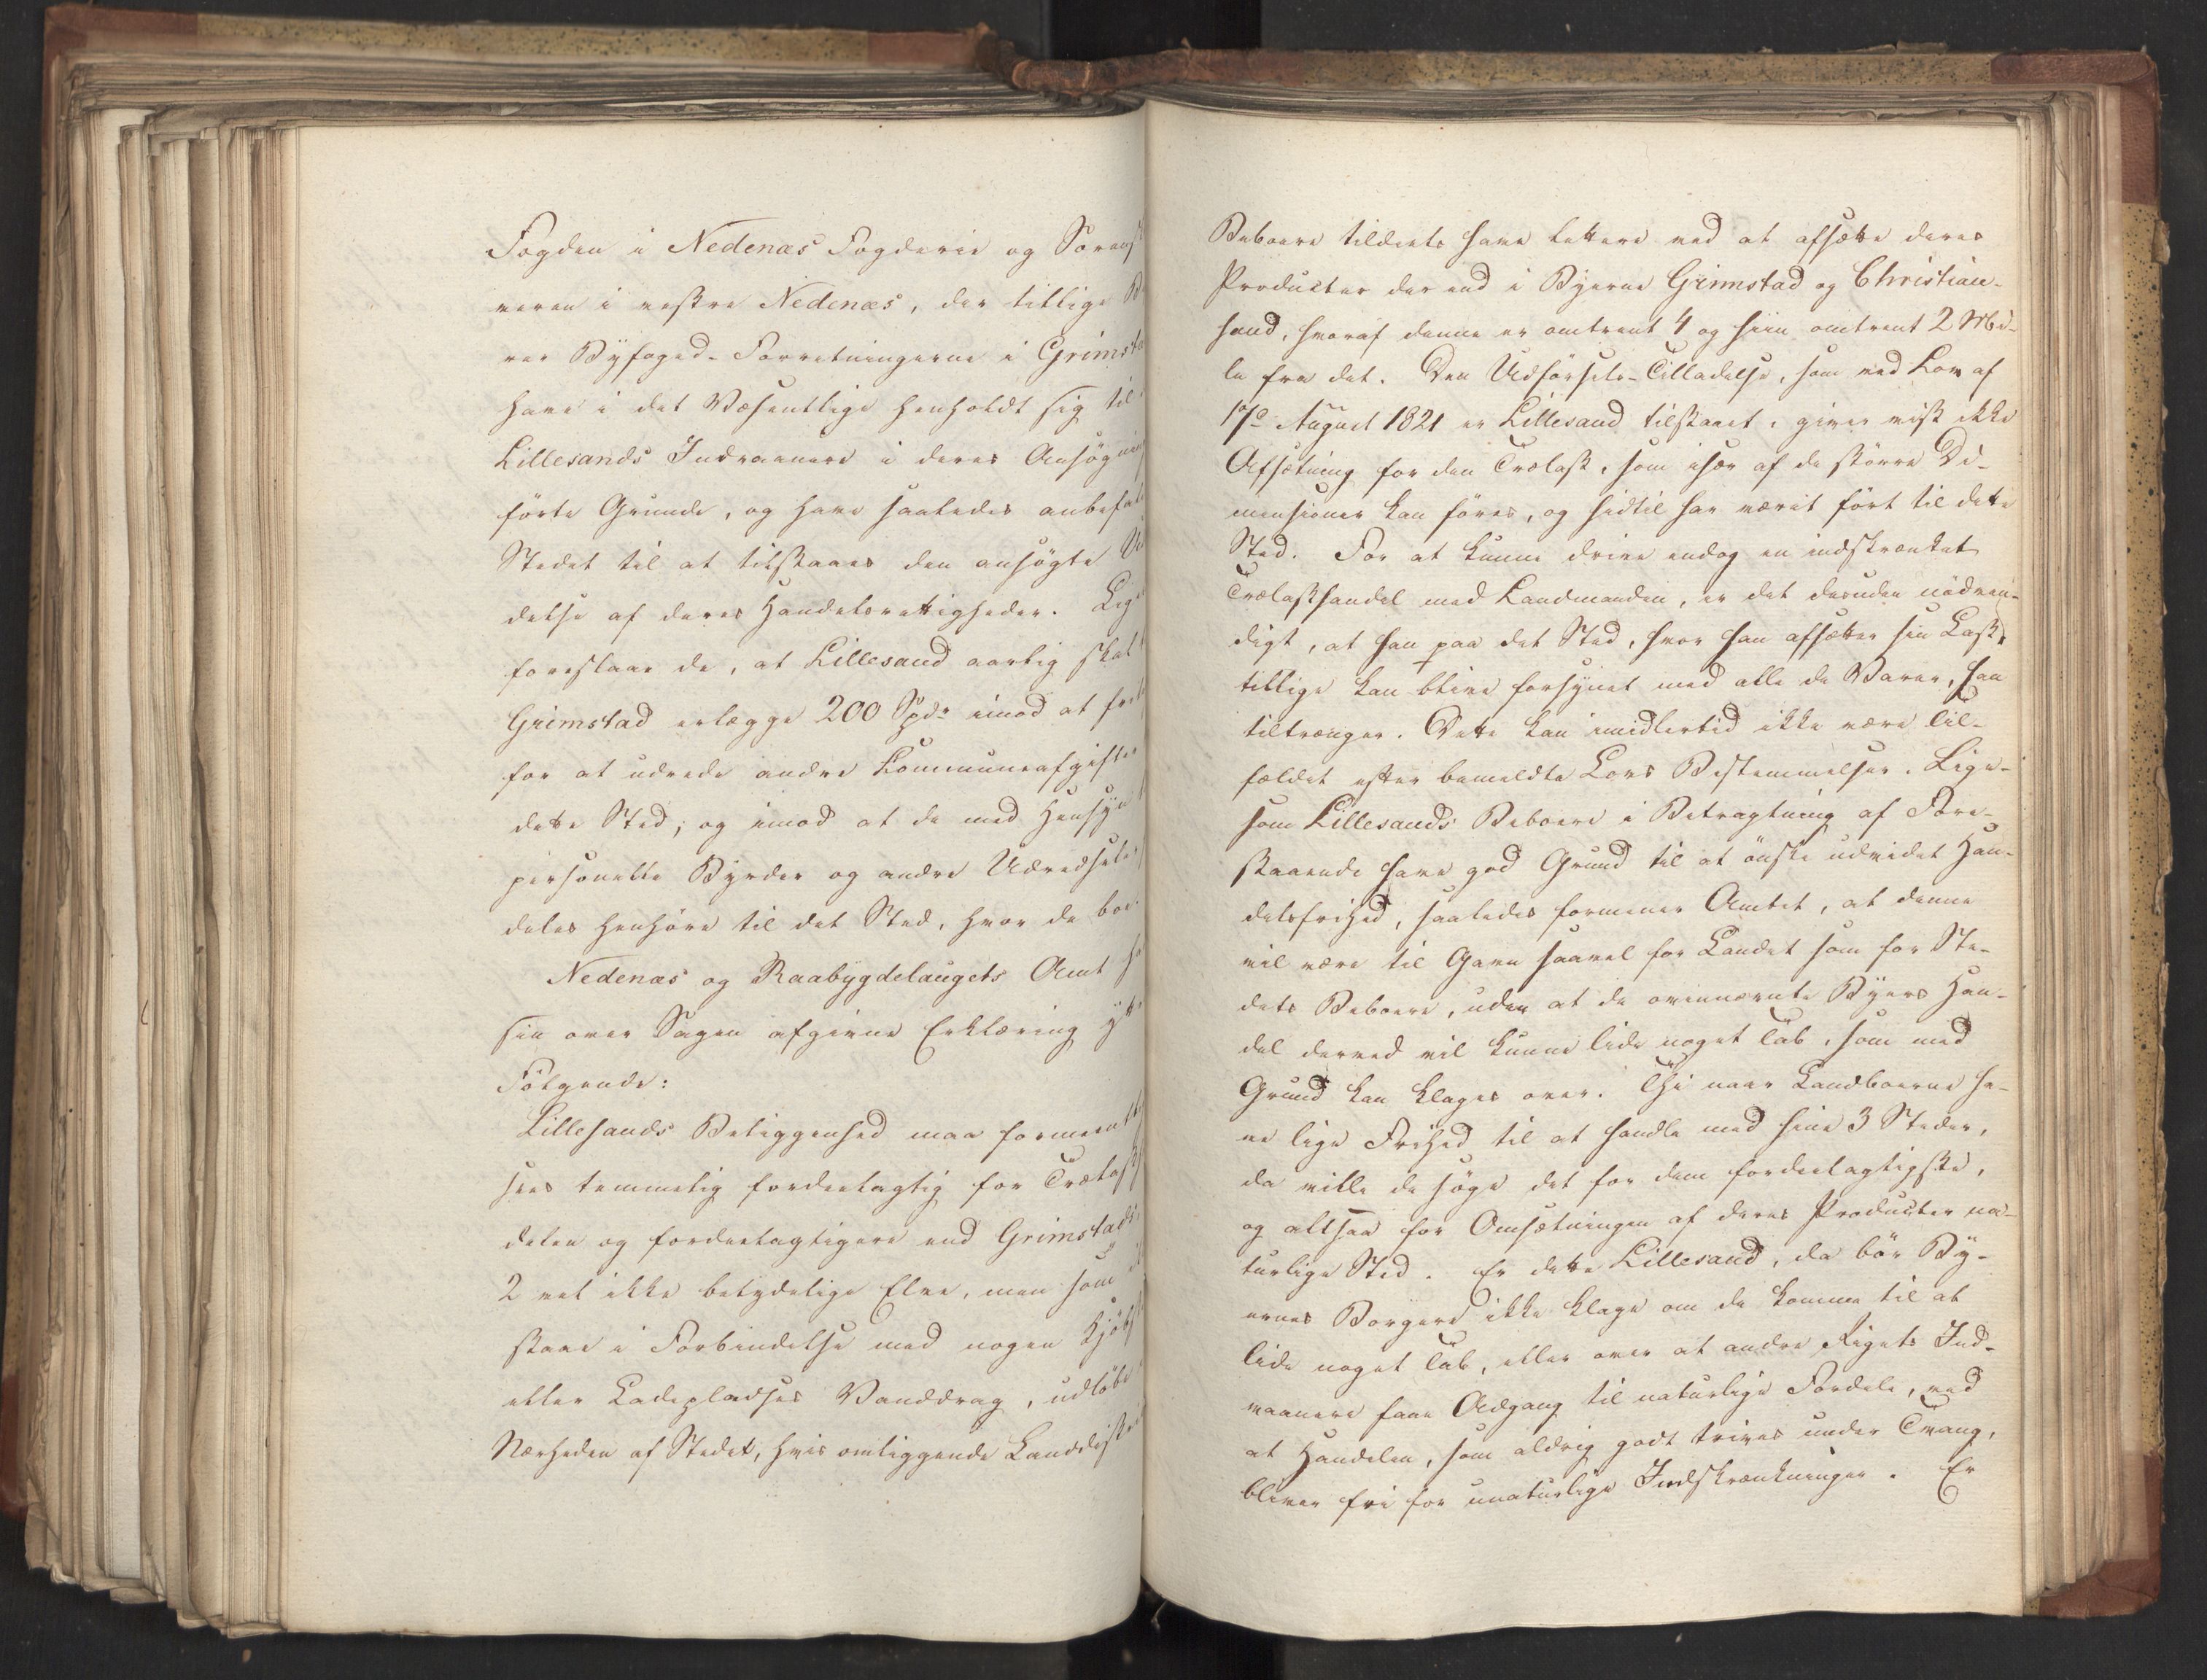 Fogden i Nedenæs Fogderie og Sorensk
veren i vestre Nedenæs, der tillige B
rer Byfoged-Forretningerne i Grimsta
have i det Væsentlige henholdt sig til
Lillesands Indvaanere i deres Ansøgning
førte Grunde, og have saaledes anbefal
Stedet til at tilstaaes den ansøgte Ud
delse af deres Handelsrettigheder. Lige
foreslaae de, at Lillesand aarlig skal
Grimstad erlægge 200 Spdr imod at frit
for at udrede andre Kommuneafgifter
dette Sted; og imod at de med Hensyn
personelle Byrder og andre Udredsler
deles henhøre til det Sted, hvor de boe.
Nedenæs og Raabygdelaugets Amt ha
sin over Sagen afgivne Erklæring ytt
Følgende:
Lillesands Beliggenhed maa formeent
sees temmelig fordeelagtig for Trælast
delen og fordeelagtigere end Grimstads,
2 vel ikke betydelige Elve, men som i
staae i Forbindelse med nogen Kjøbs
eller Ladepladses Vanddrag, udløbe
Nærheden af Stedet, hvis omliggende Landdistr
Beboere tildeels have lettere ved at afsætte deres
Producter der end i Byerne Grimstad og Christian-
sand, hvoraf denne er omtrent 4 og hiin omtrent 2 Mi-
le fra det. Den Udførsels-Tilladelse, som ved Lov af
17de August 1821 er Lillesand tilstaaet, giver vist ikke
Afsætning for den Trælast, som især af de større Di-
mensioner kan føres, og hidtil har været ført til dette
Sted. For at kunne drive endog en indskrænket
Trælasthandel med Landmanden, er det desuden nødven-
digt, at han paa det Sted, hvor han afsætter sin Last,
tillige kan blive forsynet med alle de Varer, han
tiltrænger. Dette kan imidlertid ikke være Til-
fældet efter bemeldte Lovs Bestemmelser. Lige-
som Lillesands Beboere i Betragtning af Fore-
staaende have god Grund til at ønske udvidet Han-
delsfrihed, saaledes formener Amtet, at denne
vil være til Gavn saavel for Landet som for Ste-
dets Beboere, uden at de ovennævnte Byers Han-
del derved vil kunne lide noget Tab, som med
Grund kan klages over. Thi naar Landboerne ha-
ve lige Frihed til at handle med hine 3 Steder,
da ville de søge det for dem fordeelagtigste,
og altsaa for Omsætningen af deres Producter na-
turlige Sted. Er dette Lillesand, da bør By-
ernes Borgere ikke klage om de komme til at
lide noget Tab, eller over at andre Rigets Ind-
vaanere faae Adgang til naturlige Fordele, ved
at Handelen, som aldrig godt trives under Tvang,
bliver fri for unaturlige Indskrænkninger. Er